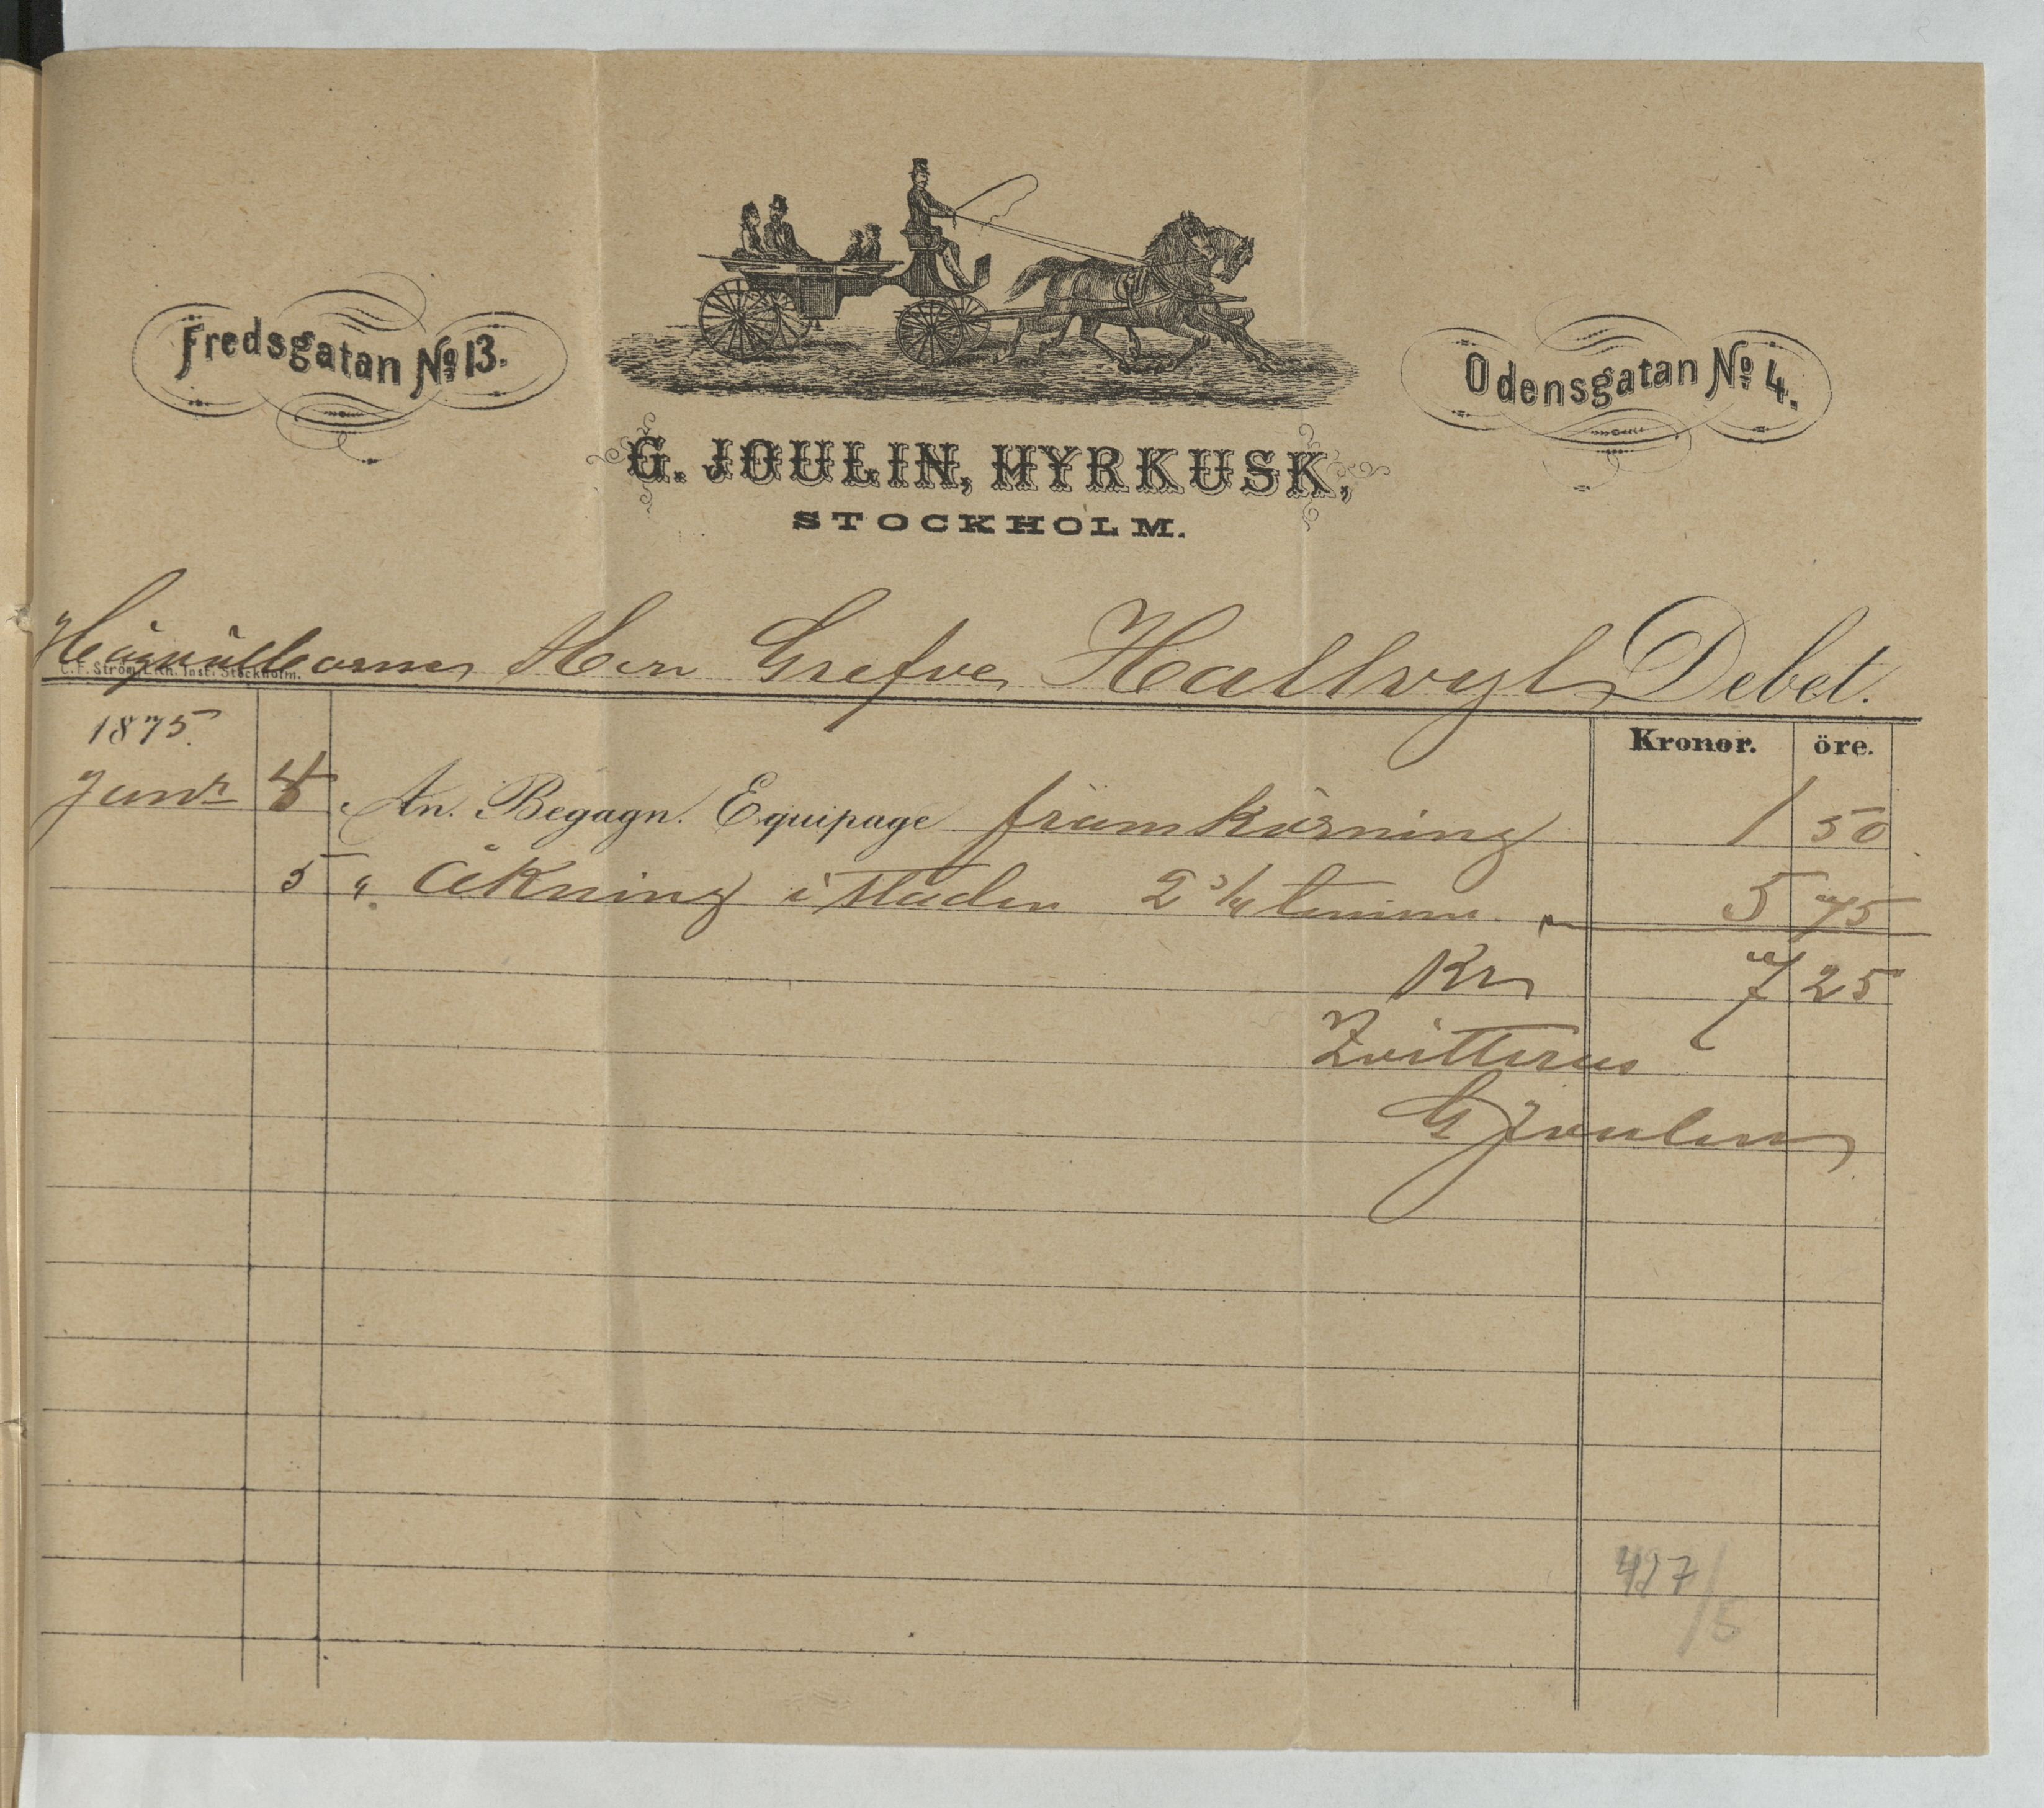 Fredsgatan No 13.
Odensgatan No 4.
G. JOULIN, HYRKUSK,
STOCKHOLM.
Högvälborne Herr Grefve Hallvyl Debet.
C. F. Ström Lith. Inst. Stockholm.
1875.
Kronor. öre.
4 An. Begagn. Equipage framkörning 1 50
5 " Åkning i staden 2 3/4 timme 5 75
Kr 7 25
Qvitteras
G Joulin